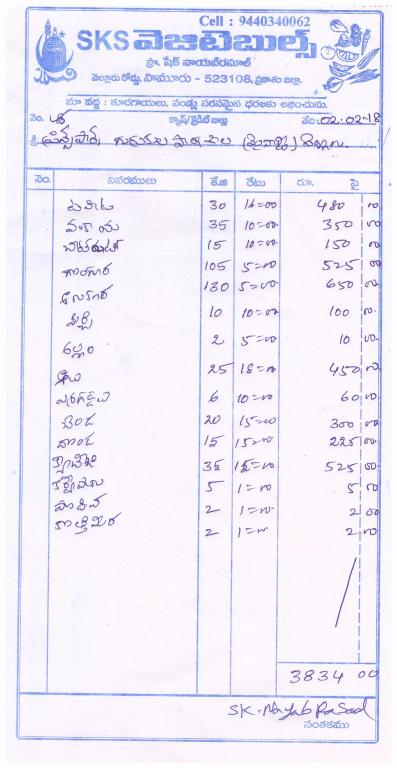 Cell : 9440340062
SKS వెజిటెబుల్స్
ప్రొ. షేక్ నాయబ్‌రసూల్
వెల్లూరు రోడ్డు, పామూరు - 523108, ప్రకాశం జిల్లా.
మా వద్ద : కూరగాయలు, పండ్లు సరసమైన ధరలకు లభించును.
నెం. క్యాష్/క్రెడిట్ బిల్లు తేది 02-02-18
శ్రీ
నెం. వివరములు కే.జి రేటు రూ. పై
టమాట 30 16=00 480 00
వంకాయ 35 10=00 350 00
15 10=00 150 00
గోంగూర 105 5=00 525 00
130 5=00 650 00
మిర్చి 10 10=00 100 00
అల్లం 2 5=00 10 00
25 18=00 450 00
6 10=00 60 00
బెండ 20 15=00 300 00
దొండ 15 15=00 225 00
క్యాబేజి 35 15=00 525 00
కరివేపాకు 5 1=00 5 00
పొదిన 2 1=00 2 00
కొత్తిమీర 2 1=00 2 00
3834 00
SK. Nayab Rasool
సంతకము